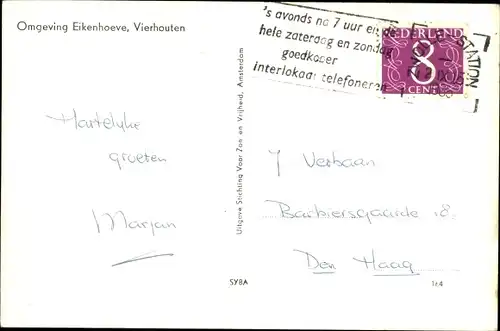 Omgeving Eikenhoeve, Vierhouten
's avonds na 7 uur en de
hele zaterdag en zondag
goedkoper
interlokaal telefoneren
NEDERLAND
8
CENT
STATION
Hartelijke
groeten
Marjan
Uitgave Stichting Voor Zon en Vrijheid, Amsterdam
J Verbaan
Barbiersgaarde 18.
Den Haag
SY8A
1r4